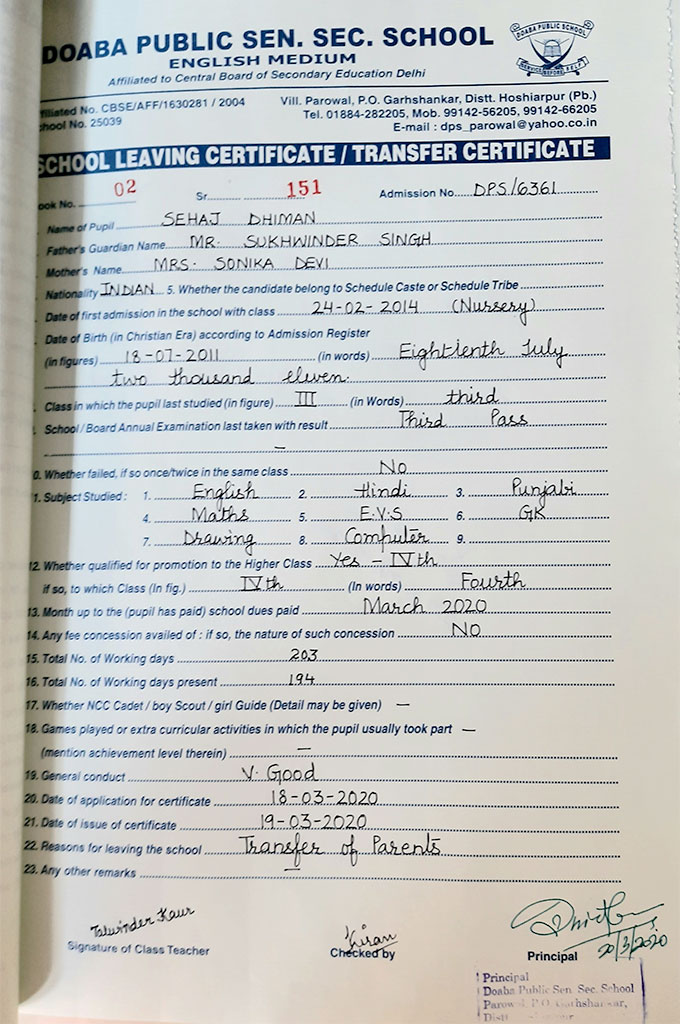 DOABA PUBLIC SEN. SEC. SCHOOL
ENGLISH MEDIUM
Affiliated to Central Board of Secondary Education Delhi
DOABA PUBLIC SCHOOL
SERVICE BEFORE SELF
filiated No. CBSE/AFF/1630281 / 2004
hool No. 25039
Vill. Parowal, P.O. Garhshankar, Distt. Hoshiarpur (Pb.)
Tel. 01884-282205, Mob. 99142-56205, 99142-66205
E-mail : dps_parowal@yahoo.co.in
SCHOOL LEAVING CERTIFICATE / TRANSFER CERTIFICATE
ook No. 02 Sr. 151 Admission No. DPS/6361
Name of Pupil SEHAJ DHIMAN
Father's Guardian Name MR. SUKHWINDER SINGH
Mother's Name MRS. SONIKA DEVI
Nationality INDIAN 5. Whether the candidate belong to Schedule Caste or Schedule Tribe
Date of first admission in the school with class 24-02-2014 (Nursery)
Date of Birth (in Christian Era) according to Admission Register
(in figures) 18-07-2011 (in words) Eighteenth July
two thousand eleven.
Class in which the pupil last studied (in figure) III (in Words) third
School / Board Annual Examination last taken with result Third Pass
—
0. Whether failed, if so once/twice in the same class No
1. Subject Studied : 1. English 2. Hindi 3. Punjabi
4. Maths 5. E.V.S 6. GK
7. Drawing 8. Computer 9.
12. Whether qualified for promotion to the Higher Class Yes - IVth
if so, to which Class (In fig.) IVth (In words) Fourth
13. Month up to the (pupil has paid) school dues paid March 2020
14. Any fee concession availed of : if so, the nature of such concession NO
15. Total No. of Working days 203
16. Total No. of Working days present 194
17. Whether NCC Cadet / boy Scout / girl Guide (Detail may be given) —
18. Games played or extra curricular activities in which the pupil usually took part —
(mention achievement level therein) —
19. General conduct V. Good
20. Date of application for certificate 18-03-2020
21. Date of issue of certificate 19-03-2020
22. Reasons for leaving the school Transfer of Parents
23. Any other remarks —
Talwinder Kaur
Signature of Class Teacher
Kiran
Checked by
Principal 20/3/2020
Principal
Doaba Public Sen. Sec. School
Parowal, P.O. Garhshankar,
Distt